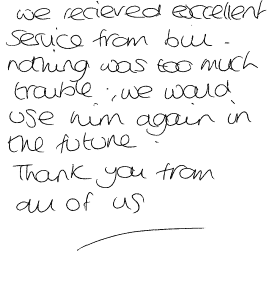 we recieved excellent
service from bill.
nothing was too much
trouble, we would
use him again in
the future.
Thank you from
all of us